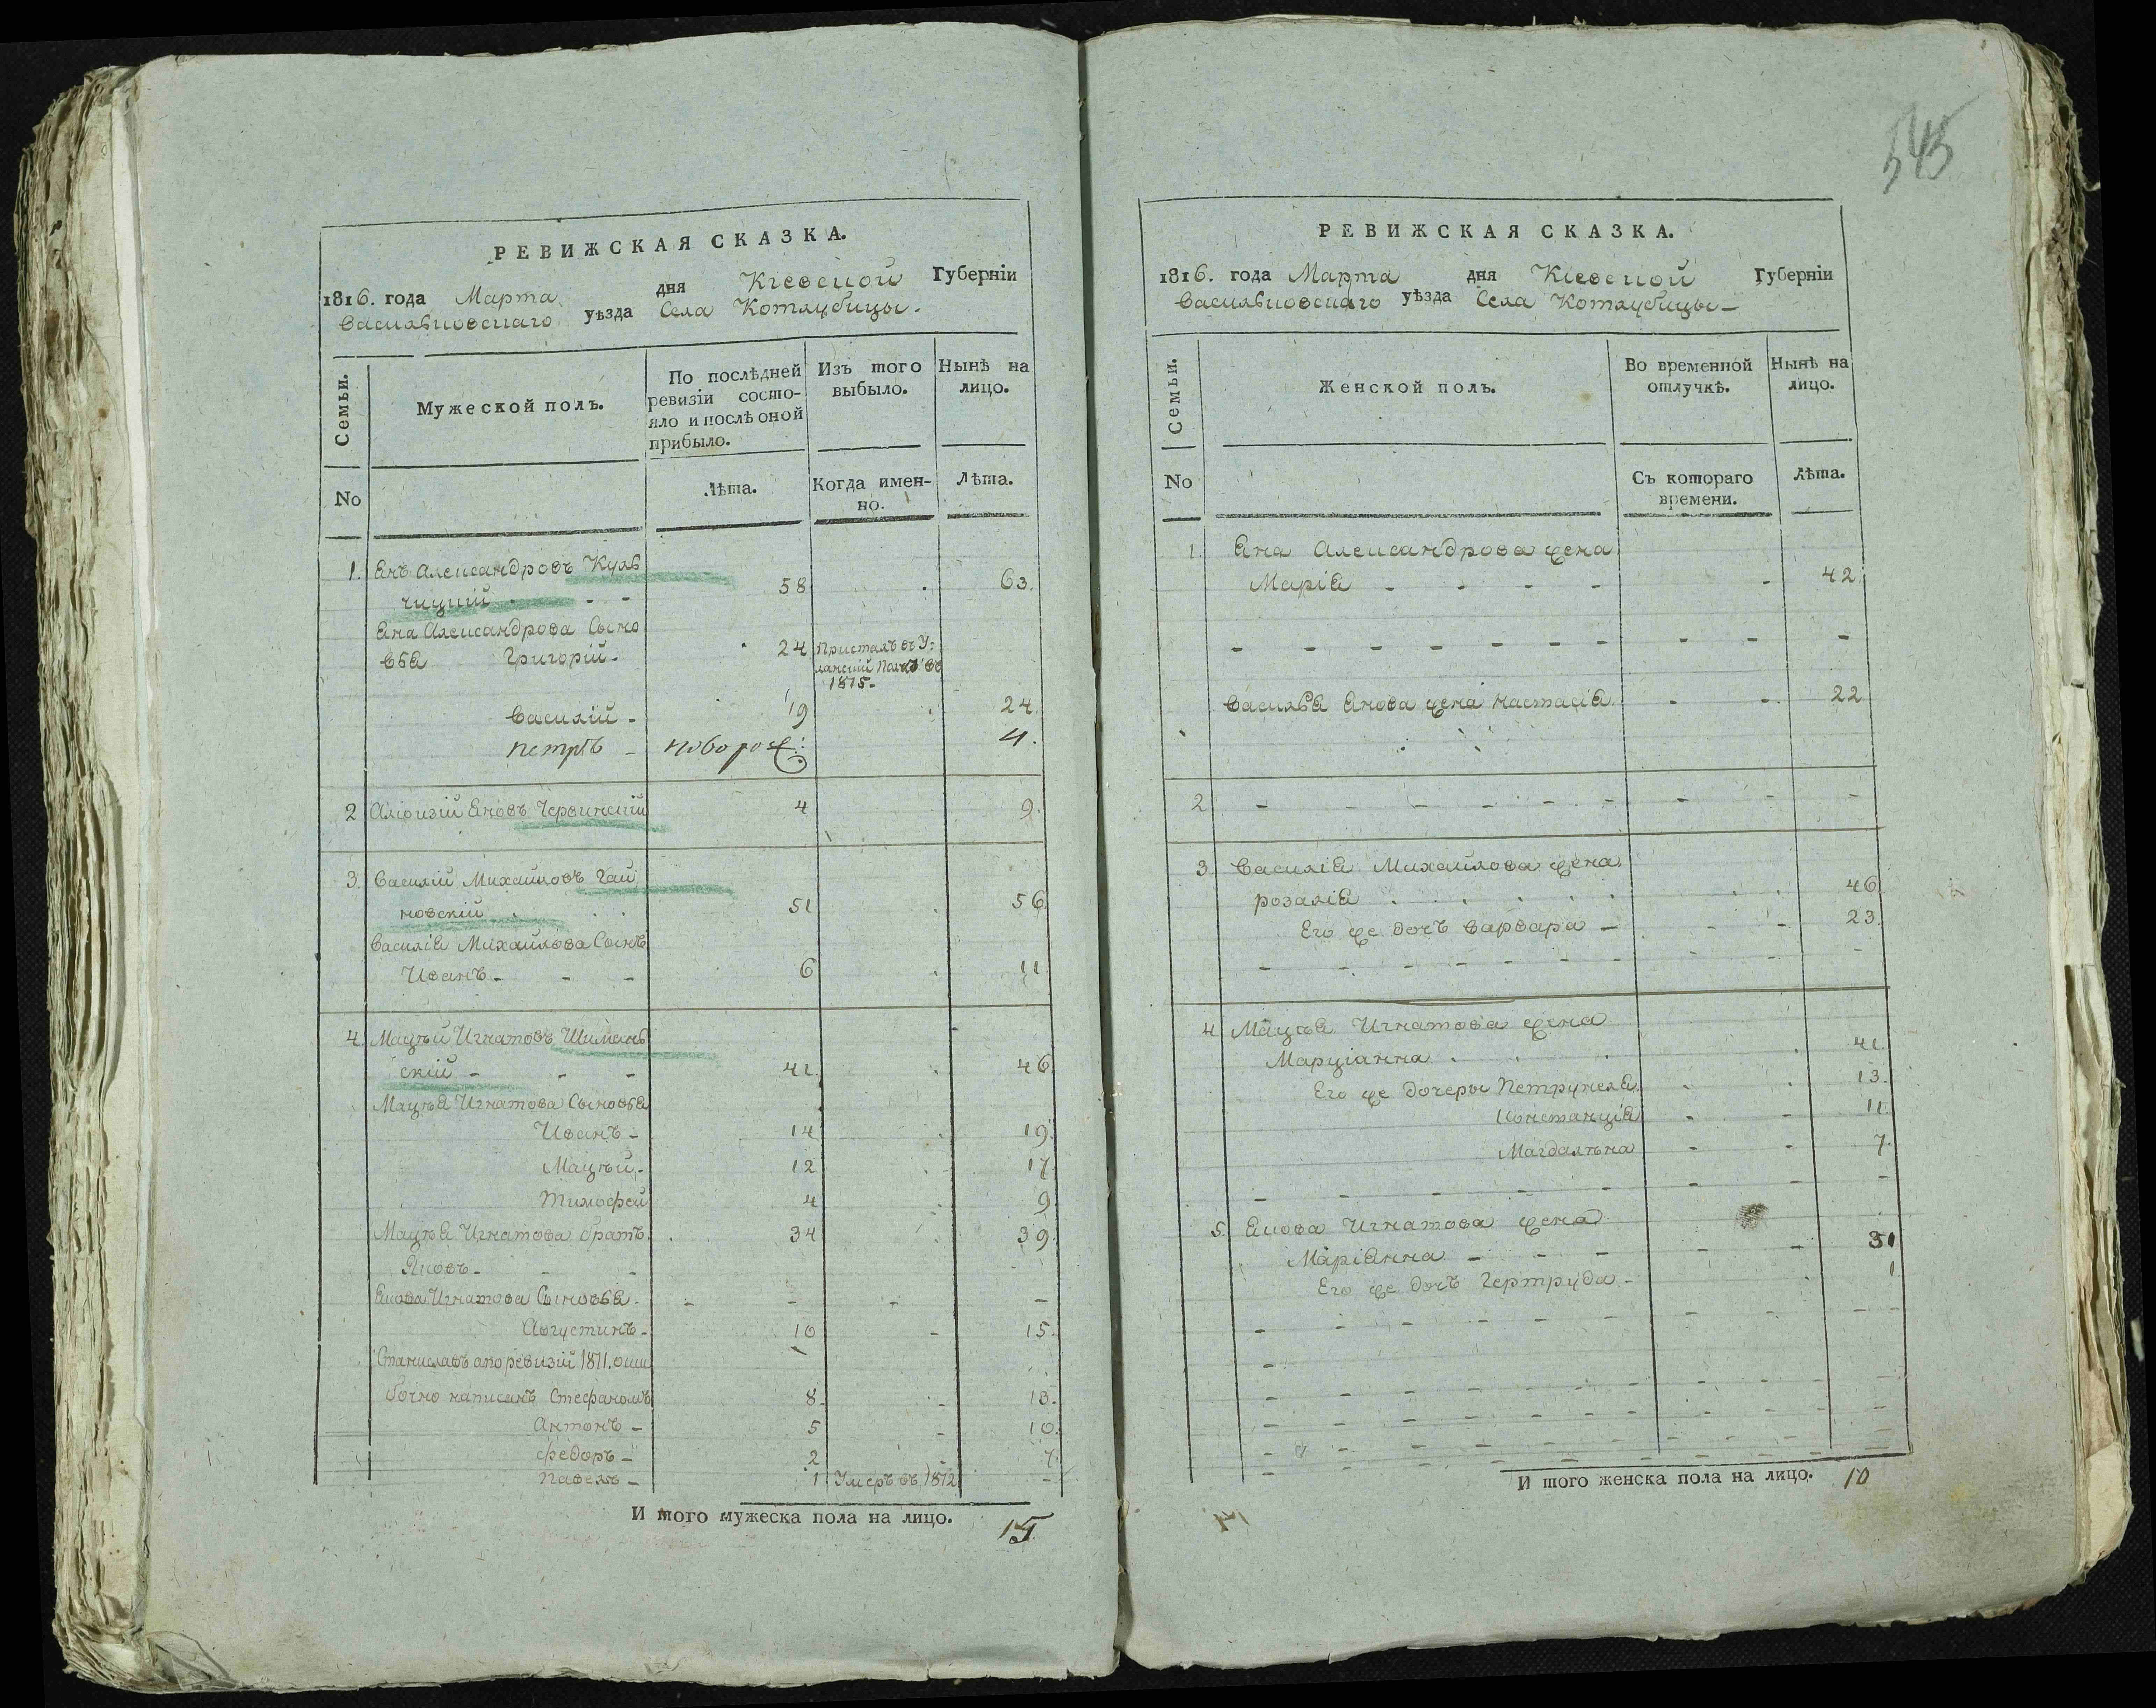 РЕВИЖСКАЯ СКАЗКА.
1816. года Марта дня Кіевской Губерніи
Васильковскаго уѣзда Села Котлубицы.
Семьи. Мужеской полъ. По послѣдней ревизіи состо-яло и послѣ оной прибыло. Изъ того выбыло. Нынѣ на лицо.
No Лѣта. Когда имен-но. Лѣта.
1. Янъ Александровъ Куль
чицкій - - 58 63.
Яна Александрова Сыно
вья Григорій. 24 Присталъ въ У=
ланскій Полкъ въ
1815.
Василій - 19 24.
Петръ - новорож: 4.
2 Алоизій Яновъ Червинскій 4 9.
3. Василій Михайловъ Гай
новскій 51 56
Василія Михайлова Сынъ
Иванъ - - - 6 11
4. Мацѣй Игнатовъ Шимань
скій - - - 41. 46.
Мацѣя Игнатова Сыновья
Иванъ - 14 19.
Мацѣй. 12 17.
Тимофей 4 9.
Мацѣя Игнатова братъ. 34 39.
Яковъ - - -
Якова Игнатова Сыновья. - - - -
Августинъ - 10 - 15.
Станиславъ а по ревизіи 1811. оши
бочно написанъ Стефаномъ 8. - 13.
Антонъ - 5 - 10.
Федоръ - 2 7.
Павелъ - 1 Умеръ въ 1812. -
И того мужеска пола на лицо. 15
545
РЕВИЖСКАЯ СКАЗКА.
1816. года Марта дня Кіевской Губерніи
Васильковскаго уѣзда Села Котлубицы -
Семьи. Женской полъ. Во временной отлучкѣ. Нынѣ на лицо.
No Съ котораго времени. Лѣта.
1. Яна Александрова жена
Марія - - - - - 42.
- - - - - - - - -
Василья Янова жена Настасія - - 22
2 - - - - - - - - -
3. Василія Михайлова жена
розалія 46.
Его же дочь Варвара - - - 23.
- - - - - - - - -
4 Мацѣя Игнатова жена
Марціанна 41.
Его же дочеры Петрунеля. 13.
Констанція - - 11.
Магдалѣна - - 7.
- - - - - - - - -
5. Якова Игнатова жена
Маріянна - - - - - 31
Его же дочь Гертруда - 1
И того женска пола на лицо. 10